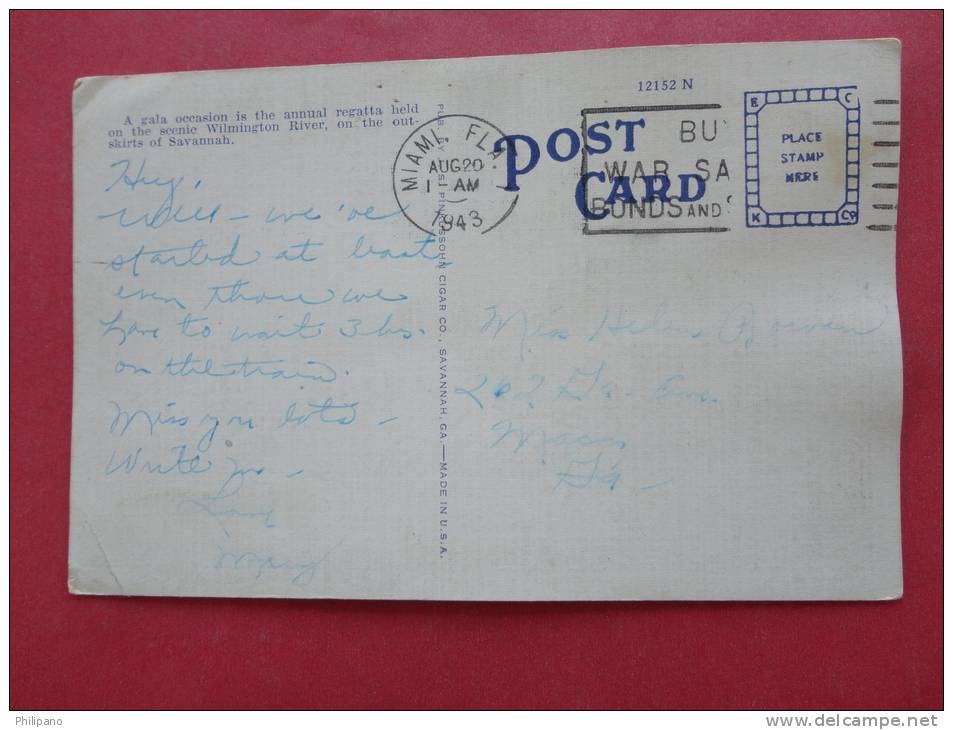 A gala occasion is the annual regatta held
on the scenic Wilmington River, on the out-
skirts of Savannah.
12152 N
POST
CARD
MIAMI, FLA.
AUG 20
1 AM
1943
BU
WAR SA
BONDS AND S
E C
PLACE
STAMP
HERE
K Co
PUB. BY S. PINKUSSOHN CIGAR CO., SAVANNAH, GA.—MADE IN U.S.A.
Hey,
Well - we've
started at least,
even though we
have to wait 3 hrs.
on the train.
Miss you lots -
Write me -
Love
Mary
Miss Helen Bowen
262 Ga. Ave.
Macon
Ga -
Philipano
www.delcampe.net